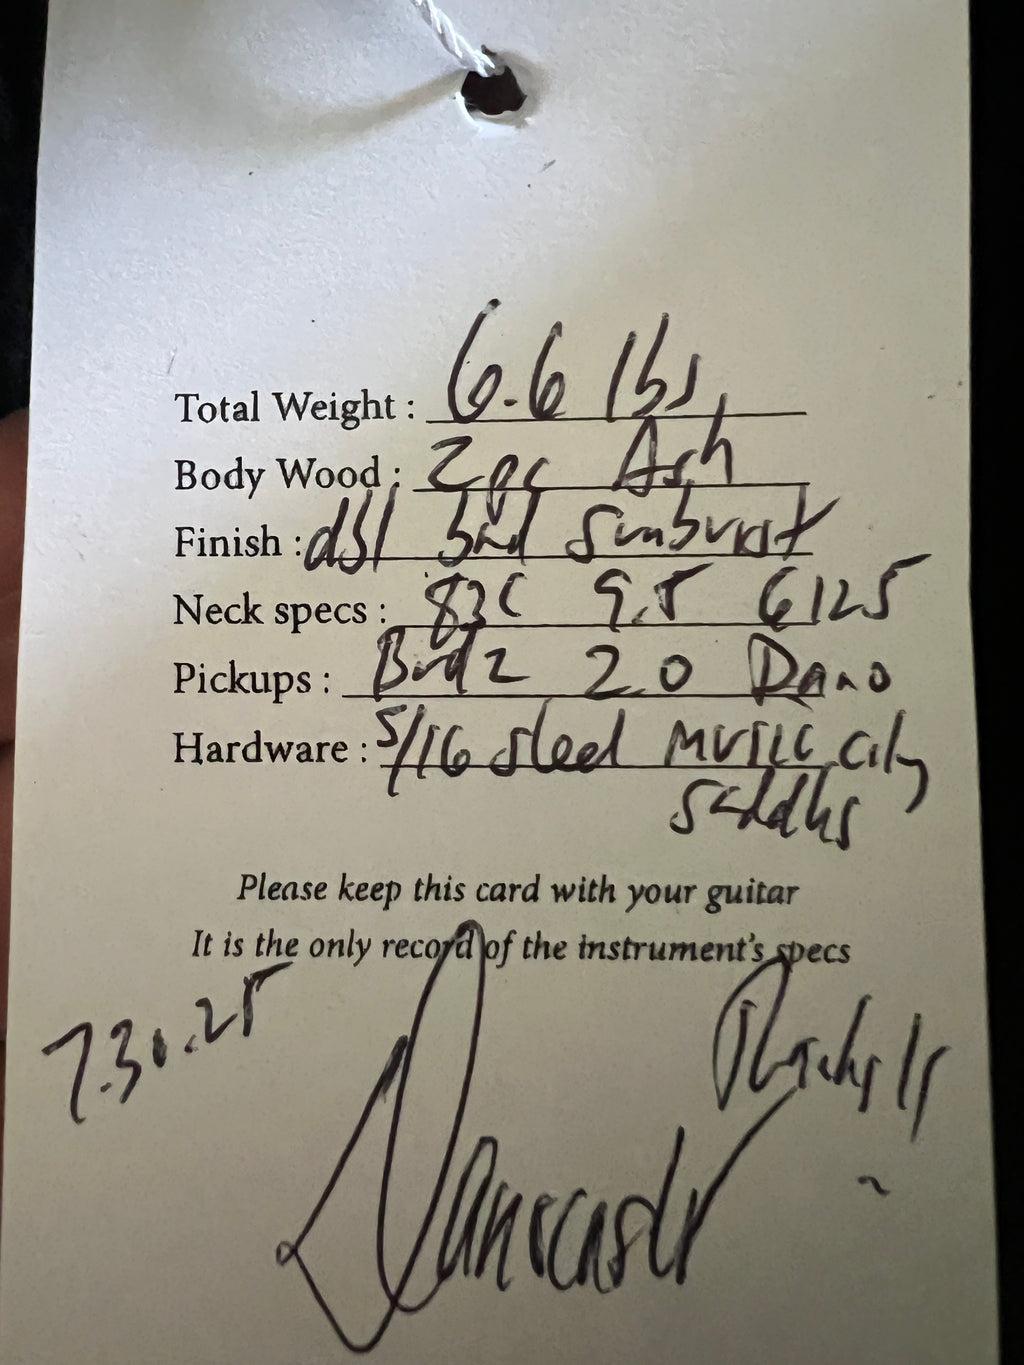 Total Weight : 6.6 lbs,
Body Wood : 2pc Ash
Finish : dbl bnd sunburst
Neck specs : 83C 9.5 6125
Pickups : 2.0 Dano
Hardware : 5/16 steel music city
saddles
Please keep this card with your guitar
It is the only record of the instrument's specs
7.30.25
Danocaster